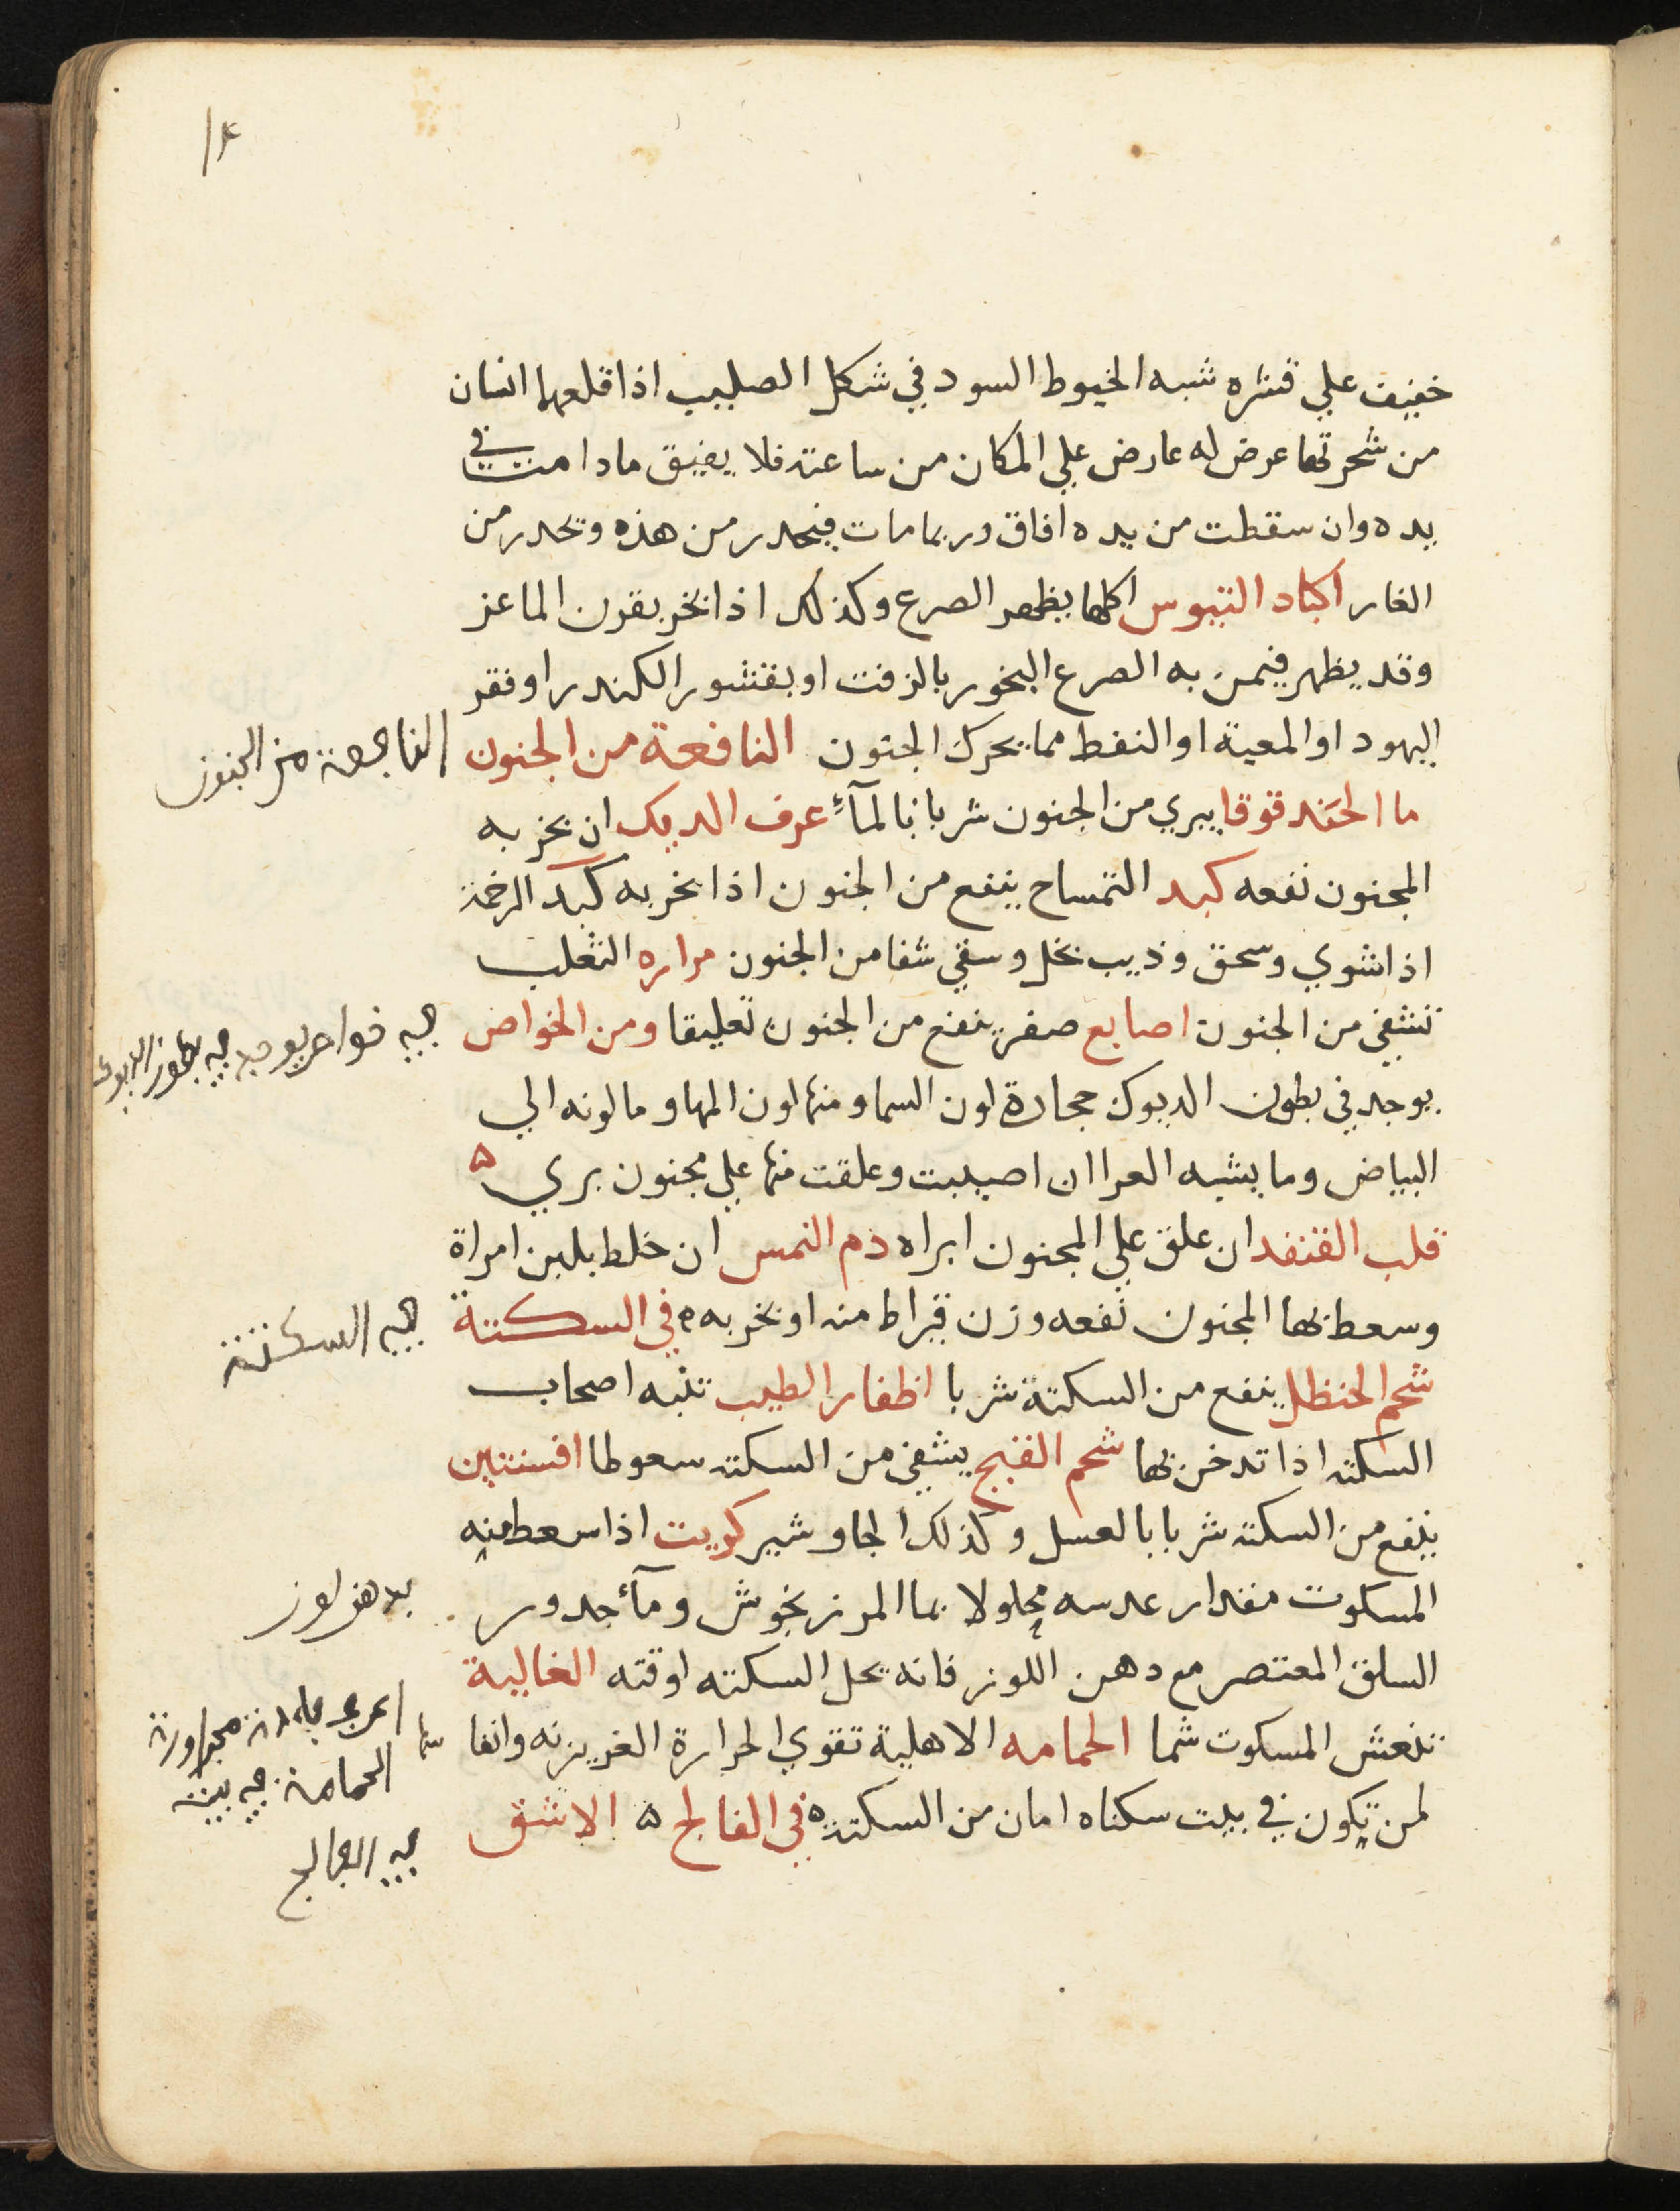 خفيف علي قشره شبه الخيوط السود في شكل الصليب اذا قلعها انسان
من شجرتها عرض له عارض علي المكان من ساعته فلا يفيق مادامت في
يده وان سقطت من يده افاق وربما مات فيحدر من هذه ويحدر من
الغار اكباد التيوس اكلها يظهر الصرع وكذلك اذا بخر بقرون الماعز
وقد يظهر فيمن به الصرع البخور بالزفت او بقشور الكندر او فقر
اليهود او المعية او النفط مما يحرك الجنون النافعة من الجنون
ما الحندقوقا يبري من الجنون شربا بالمآء عرف الديك ان بخر به
المجنون نفعه كبد التمساح ينفع من الجنون اذا بخر به كبد الرخمة
اذا شوي وسحق وذيب بخل وسقي شفا من الجنون مراره الثعلب
تشفي من الجنون اصابع صفر ينفع من الجنون تعليقا ومن الخواص
يوجد في بطون الديوك حجارة لون السما ومنها لون المها وما لونه الي
البياض وما يشبه العرا ان اصيبت وعلقت منها علي مجنون بري ه
قلب القنفد ان علق علي المجنون ابراه دم النمس ان خلط بلبن امراة
وسعط بها المجنون نفعه وزن قيراط منه او بخر به ه في السكتة
شحم الحنظل ينفع من السكتة شربا اظفار الطيب تنبه اصحاب
السكته اذا تدخن بها شحم القبج يشفي من السكته سعوطا افسنتين
ينفع من السكته شربا بالعسل وكذلك الجاوشير كوبت اذا سعط منه
المسكوت مقدار عدسه محلولا بما المرزنجوش ومآء جدور
السلق المعتصر مع دهن اللوز فانه يحل السكته اوقته الغالية
تنعش المسكوت شما الحمامه الاهلية تقوي الحرارة الغريزيه وانفا
لمن تكون في بيت سكناه امان من السكته ه في الفالج ه الاشق
النافعة من الجنون
في خواص يوجد في بطون الديوك
في السكتة
بدهن لوز
مجاورة
الحمامة في بيت
في الفالج